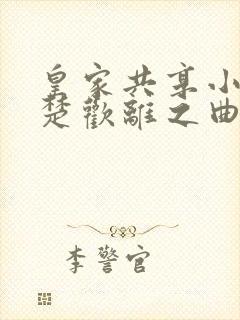 皇家共享小
楚歡離之曲
李警官